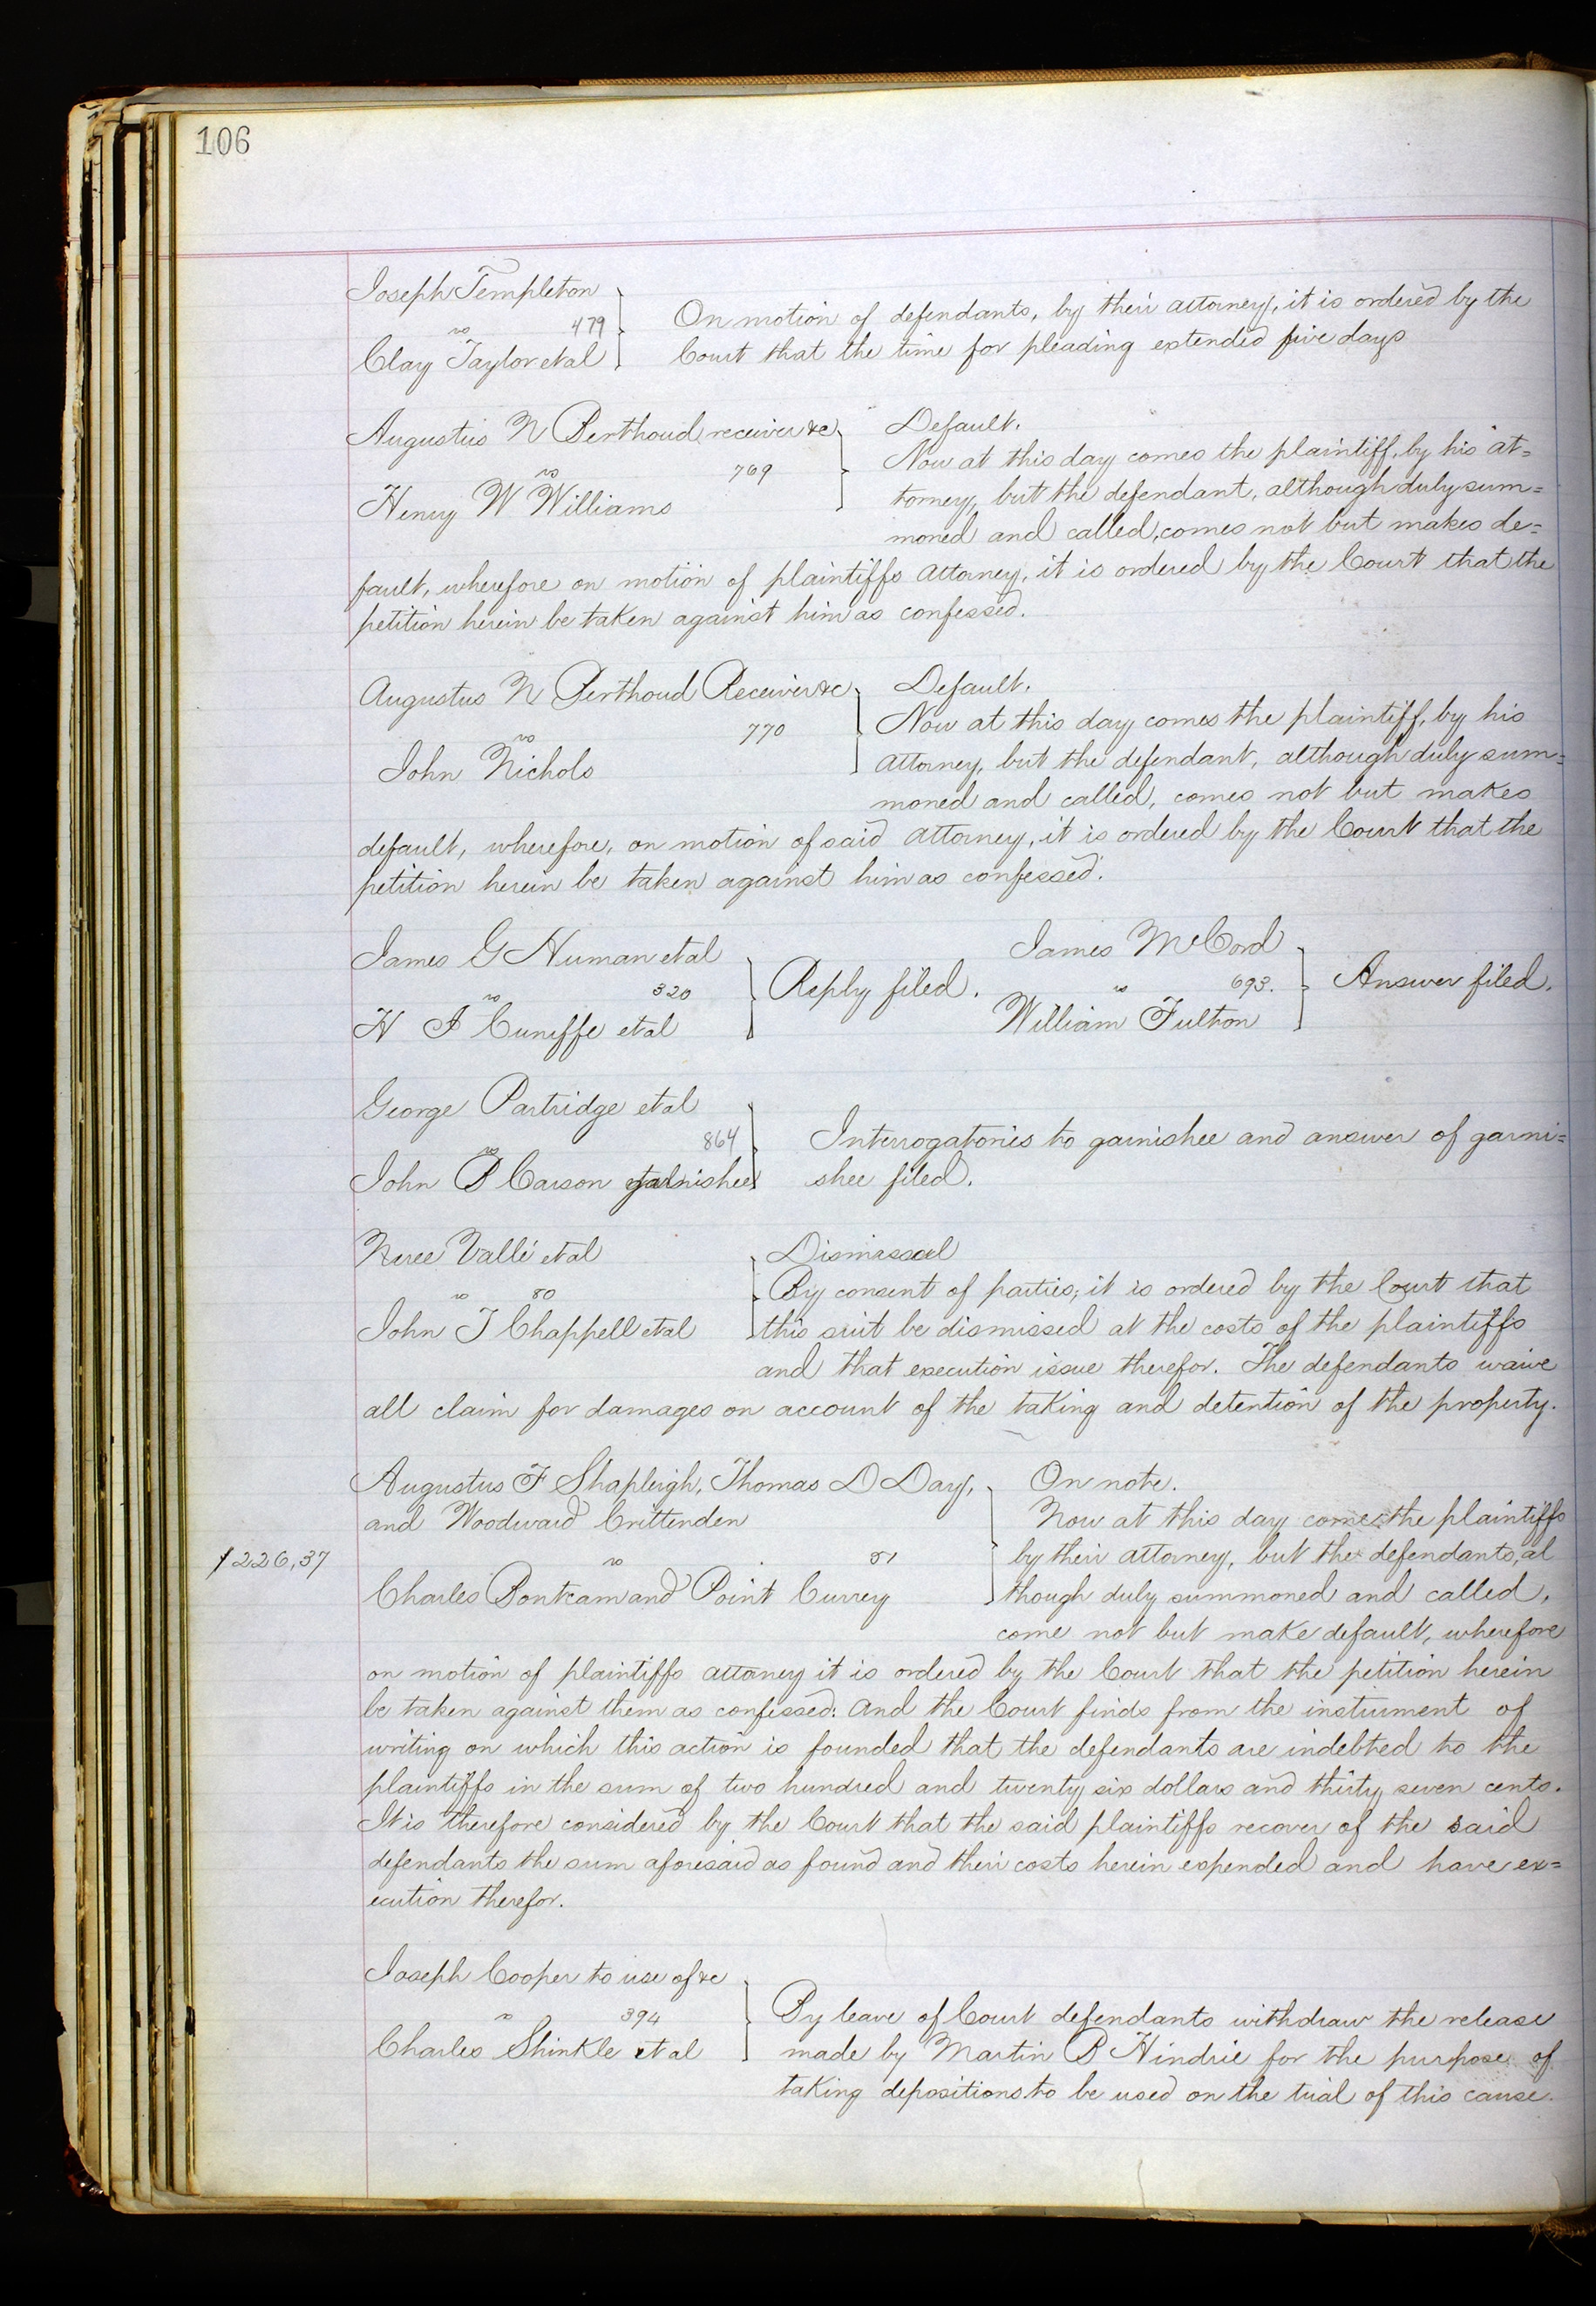 106
Joseph Templeton
vs 479
Clay Taylor et al
On motion of defendants, by their attorney, it is ordered by the
Court that the time for pleading extended five days
Augustus N Berthoud receiver &c
vs 769
Henry W Williams
Default.
Now at this day comes the plaintiff, by his at=
torney, but the defendant, although duly sum=
moned and called, comes not but makes de=
fault, wherefore on motion of plaintiffs attorney, it is ordered by the Court that the
petition herein be taken against him as confessed.
Augustus N Berthoud Receiver &c
vs 770
John Nichols
Default.
Now at this day comes the plaintiff, by his
attorney, but the defendant, although duly sum=
moned and called, comes not but makes
default, wherefore, on motion of said attorney, it is ordered by the Court that the
petition herein be taken against him as confessed.
James G Human et al
vs 320
H A Cuniffe et al
Reply filed.
James McCord
vs 693.
William Fulton
Answer filed.
George Partridge et al
vs 864
John B Carson garnishee
Interrogatories to garnishee and answer of garni=
shee filed.
Neree Vallé et al
vs 80
John T Chappell et al
Dismissal
By consent of parties, it is ordered by the Court that
this suit be dismissed at the costs of the plaintiffs
and that execution issue therefor. The defendants waive
all claim for damages on account of the taking and detention of the property.
Augustus F Shapleigh, Thomas D Day,
and Woodward Crittenden
vs 81
Charles and Point Currey
$226,37
On note.
Now at this day comes the plaintiffs
by their attorney, but the defendants, al
though duly summoned and called,
come not but make default, wherefore
on motion of plaintiffs attorney it is ordered by the Court that the petition herein
be taken against them as confessed: And the Court finds from the instrument of
writing on which this action is founded that the defendants are indebted to the
plaintiffs in the sum of two hundred and twenty six dollars and thirty seven cents.
It is therefore considered by the Court that the said plaintiffs recover of the said
defendants the sum aforesaid as found and their costs herein expended and have ex=
ecution therefor.
Joseph Cooper to use of &c
vs 394
Charles Shinkle et al
By leave of Court defendants withdraw the release
made by Martin B Hindrie for the purpose of
taking depositions to be used on the trial of this cause.